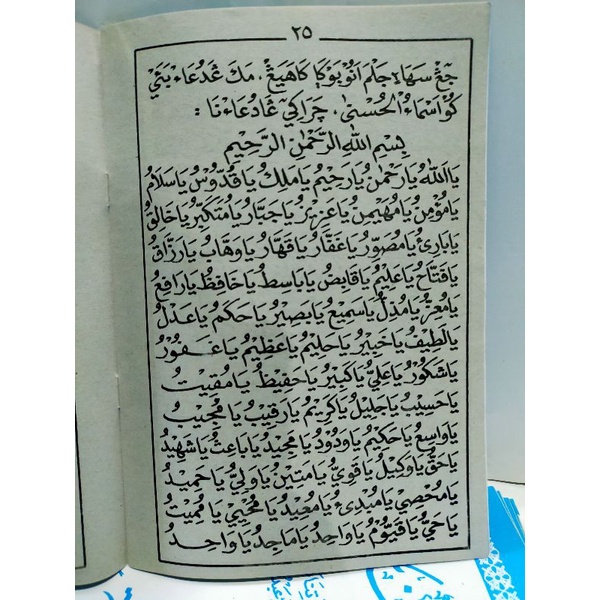 ٢٥
جڠ سهاۑ جلم انو بوڬا كاهيڠ، مك ڠدعاء بئي
كو اسماء الحسنى، چراكي ڠادعاء نا :
بِسْمِ اللهِ الرَّحْمٰنِ الرَّحِيْمِ
يَا اَللهُ يَا رَحْمٰنُ يَا رَحِيْمُ يَا مَلِكُ يَا قُدُّوْسُ يَا سَلَامُ
يَا مُؤْمِنُ يَا مُهَيْمِنُ يَا عَزِيْزُ يَا جَبَّارُ يَا مُتَكَبِّرُ يَا خَالِقُ
يَا بَارِئُ يَا مُصَوِّرُ يَا غَفَّارُ يَا قَهَّارُ يَا وَهَّابُ يَا رَزَّاقُ
يَا فَتَّاحُ يَا عَلِيْمُ يَا قَابِضُ يَا بَاسِطُ يَا خَافِظُ يَا رَافِعُ
يَا مُعِزُّ يَا مُذِلُّ يَا سَمِيْعُ يَا بَصِيْرُ يَا حَكَمُ يَا عَدْلُ
يَا لَطِيْفُ يَا خَبِيْرُ يَا حَلِيْمُ يَا عَظِيْمُ يَا غَفُوْرُ
يَا شَكُوْرُ يَا عَلِيُّ يَا كَبِيْرُ يَا حَفِيْظُ يَا مُقِيْتُ
يَا حَسِيْبُ يَا جَلِيْلُ يَا كَرِيْمُ يَا رَقِيْبُ يَا مُجِيْبُ
يَا وَاسِعُ يَا حَكِيْمُ يَا وَدُوْدُ يَا مَجِيْدُ يَا بَاعِثُ يَا شَهِيْدُ
يَا حَقُّ يَا وَكِيْلُ يَا قَوِيُّ يَا مَتِيْنُ يَا وَلِيُّ يَا حَمِيْدُ
يَا مُحْصِيْ يَا مُبْدِئُ يَا مُعِيْدُ يَا مُحْيِيْ يَا مُمِيْتُ
يَا حَيُّ يَا قَيُّوْمُ يَا وَاحِدُ يَا مَاجِدُ يَا وَاحِدُ